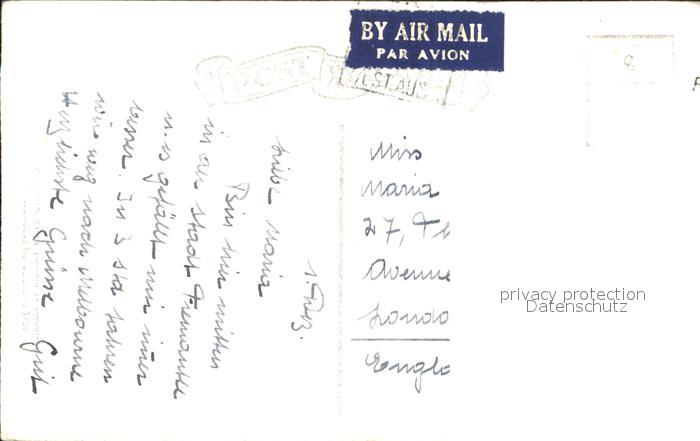 BY AIR MAIL
PAR AVION
POST
WEST AUS
8
1. Feb.
Liebe Maria
Bin hier mitten
in der Stadt Fremantle
u. es gefällt mir immer
besser. In 3 Std fahren
wir weg nach Melbourne
Herzlichste Grüsse
Miss
Maria
27, Fe
Avenue
Londo
Engla
privacy protection
Datenschutz